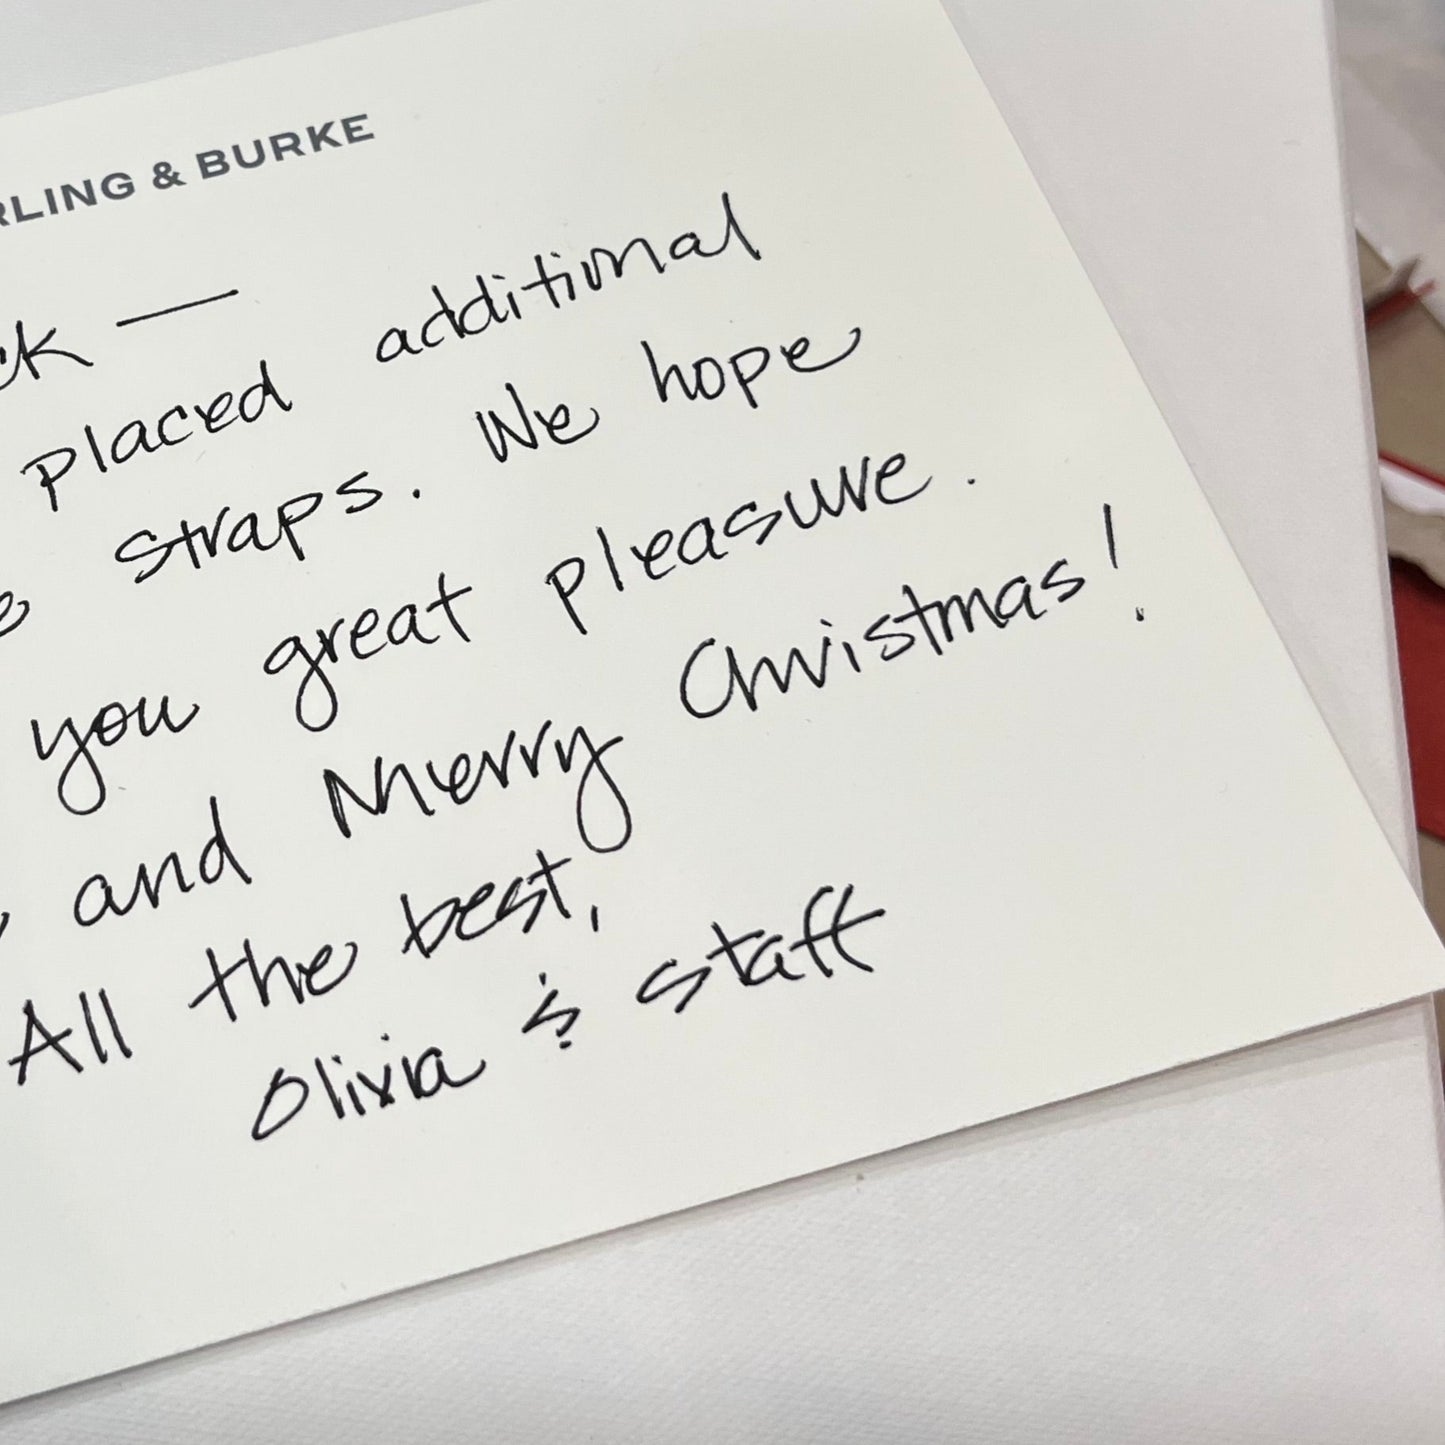 RLING & BURKE
ck —
placed additional
straps. We hope
you great pleasure.
and Merry Christmas!
All the best,
Olivia & staff